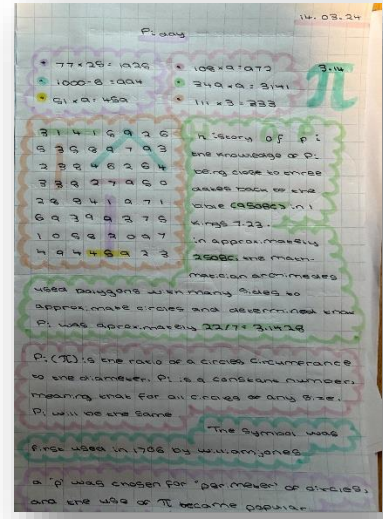 14.03.24
Pi day
77 x 25 = 1925
1000 - 6 = 994
51 x 9 = 459
108 x 9 = 972
349 x 9 = 3141
111 x 3 = 333
3.14
π
3 1 4 1 5 9 2 6
5 3 5 8 9 7 9 3
2 3 8 4 6 2 6 4
3 3 8 3 2 7 9 5 0
2 8 8 4 1 9 7 1
6 9 3 9 9 3 7 5
1 0 5 8 2 0 9 7
4 9 4 4 5 9 2 3
History of Pi
the knowledge of Pi
being close to three
dates back to the
(950BC) in 1
kings 7.23.
in approximately
250BC, the math-
matician archimedes
used polygons with many sides to
approximate circles and determined that
Pi was aproximately 22/7 = 3.1428
Pi (π) is the ratio of a circles circumfrance
to the diameter. Pi is a constant number,
meaning that for all circles of any size.
Pi will be the same
The Symbol was
first used in 1706 by william jones
a 'p' was chosen for "perimeter" of circles,
and the use of π became popular